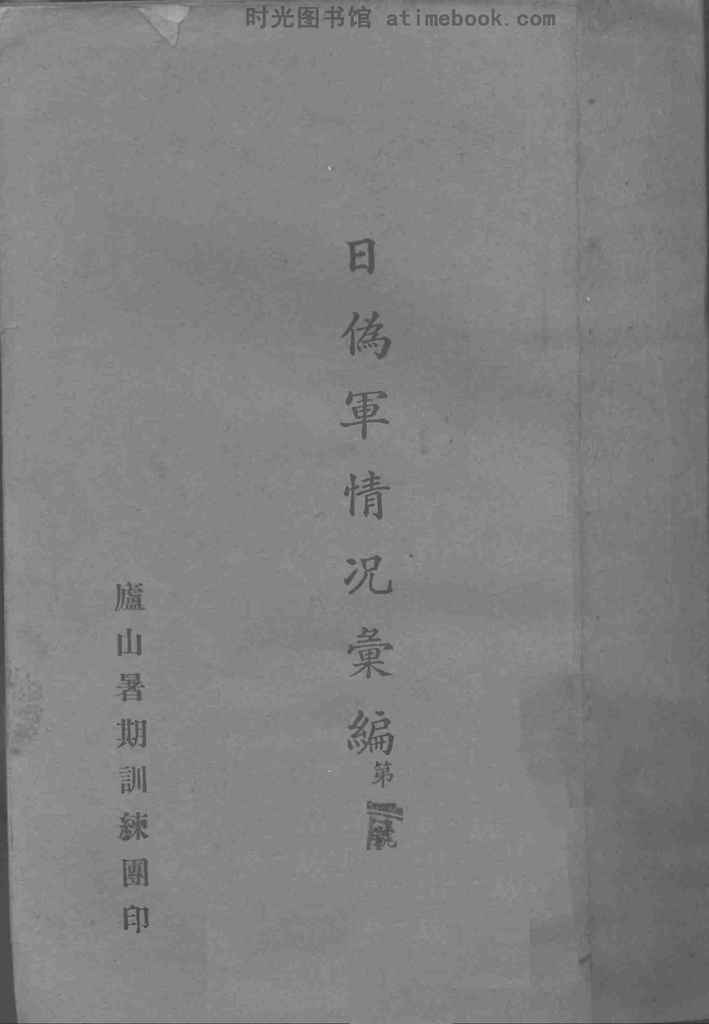 时光图书馆 atimebook.com
日偽軍情况彙編第號
廬山暑期訓練團印